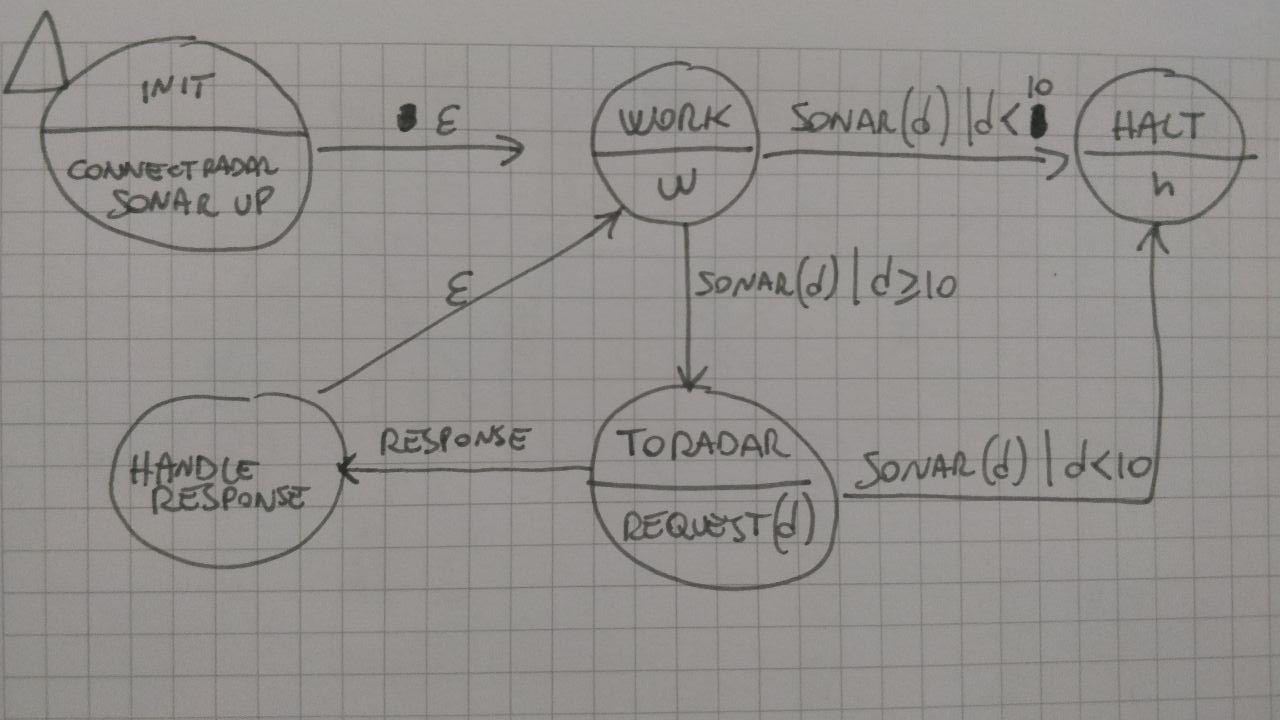 INIT
CONNECTRADAR
SONAR UP
ε
WORK
W
SONAR(d) | d < 10
HALT
h
ε
SONAR(d) | d ≥ 10
HANDLE
RESPONSE
RESPONSE
TORADAR
REQUEST(d)
SONAR(d) | d < 10